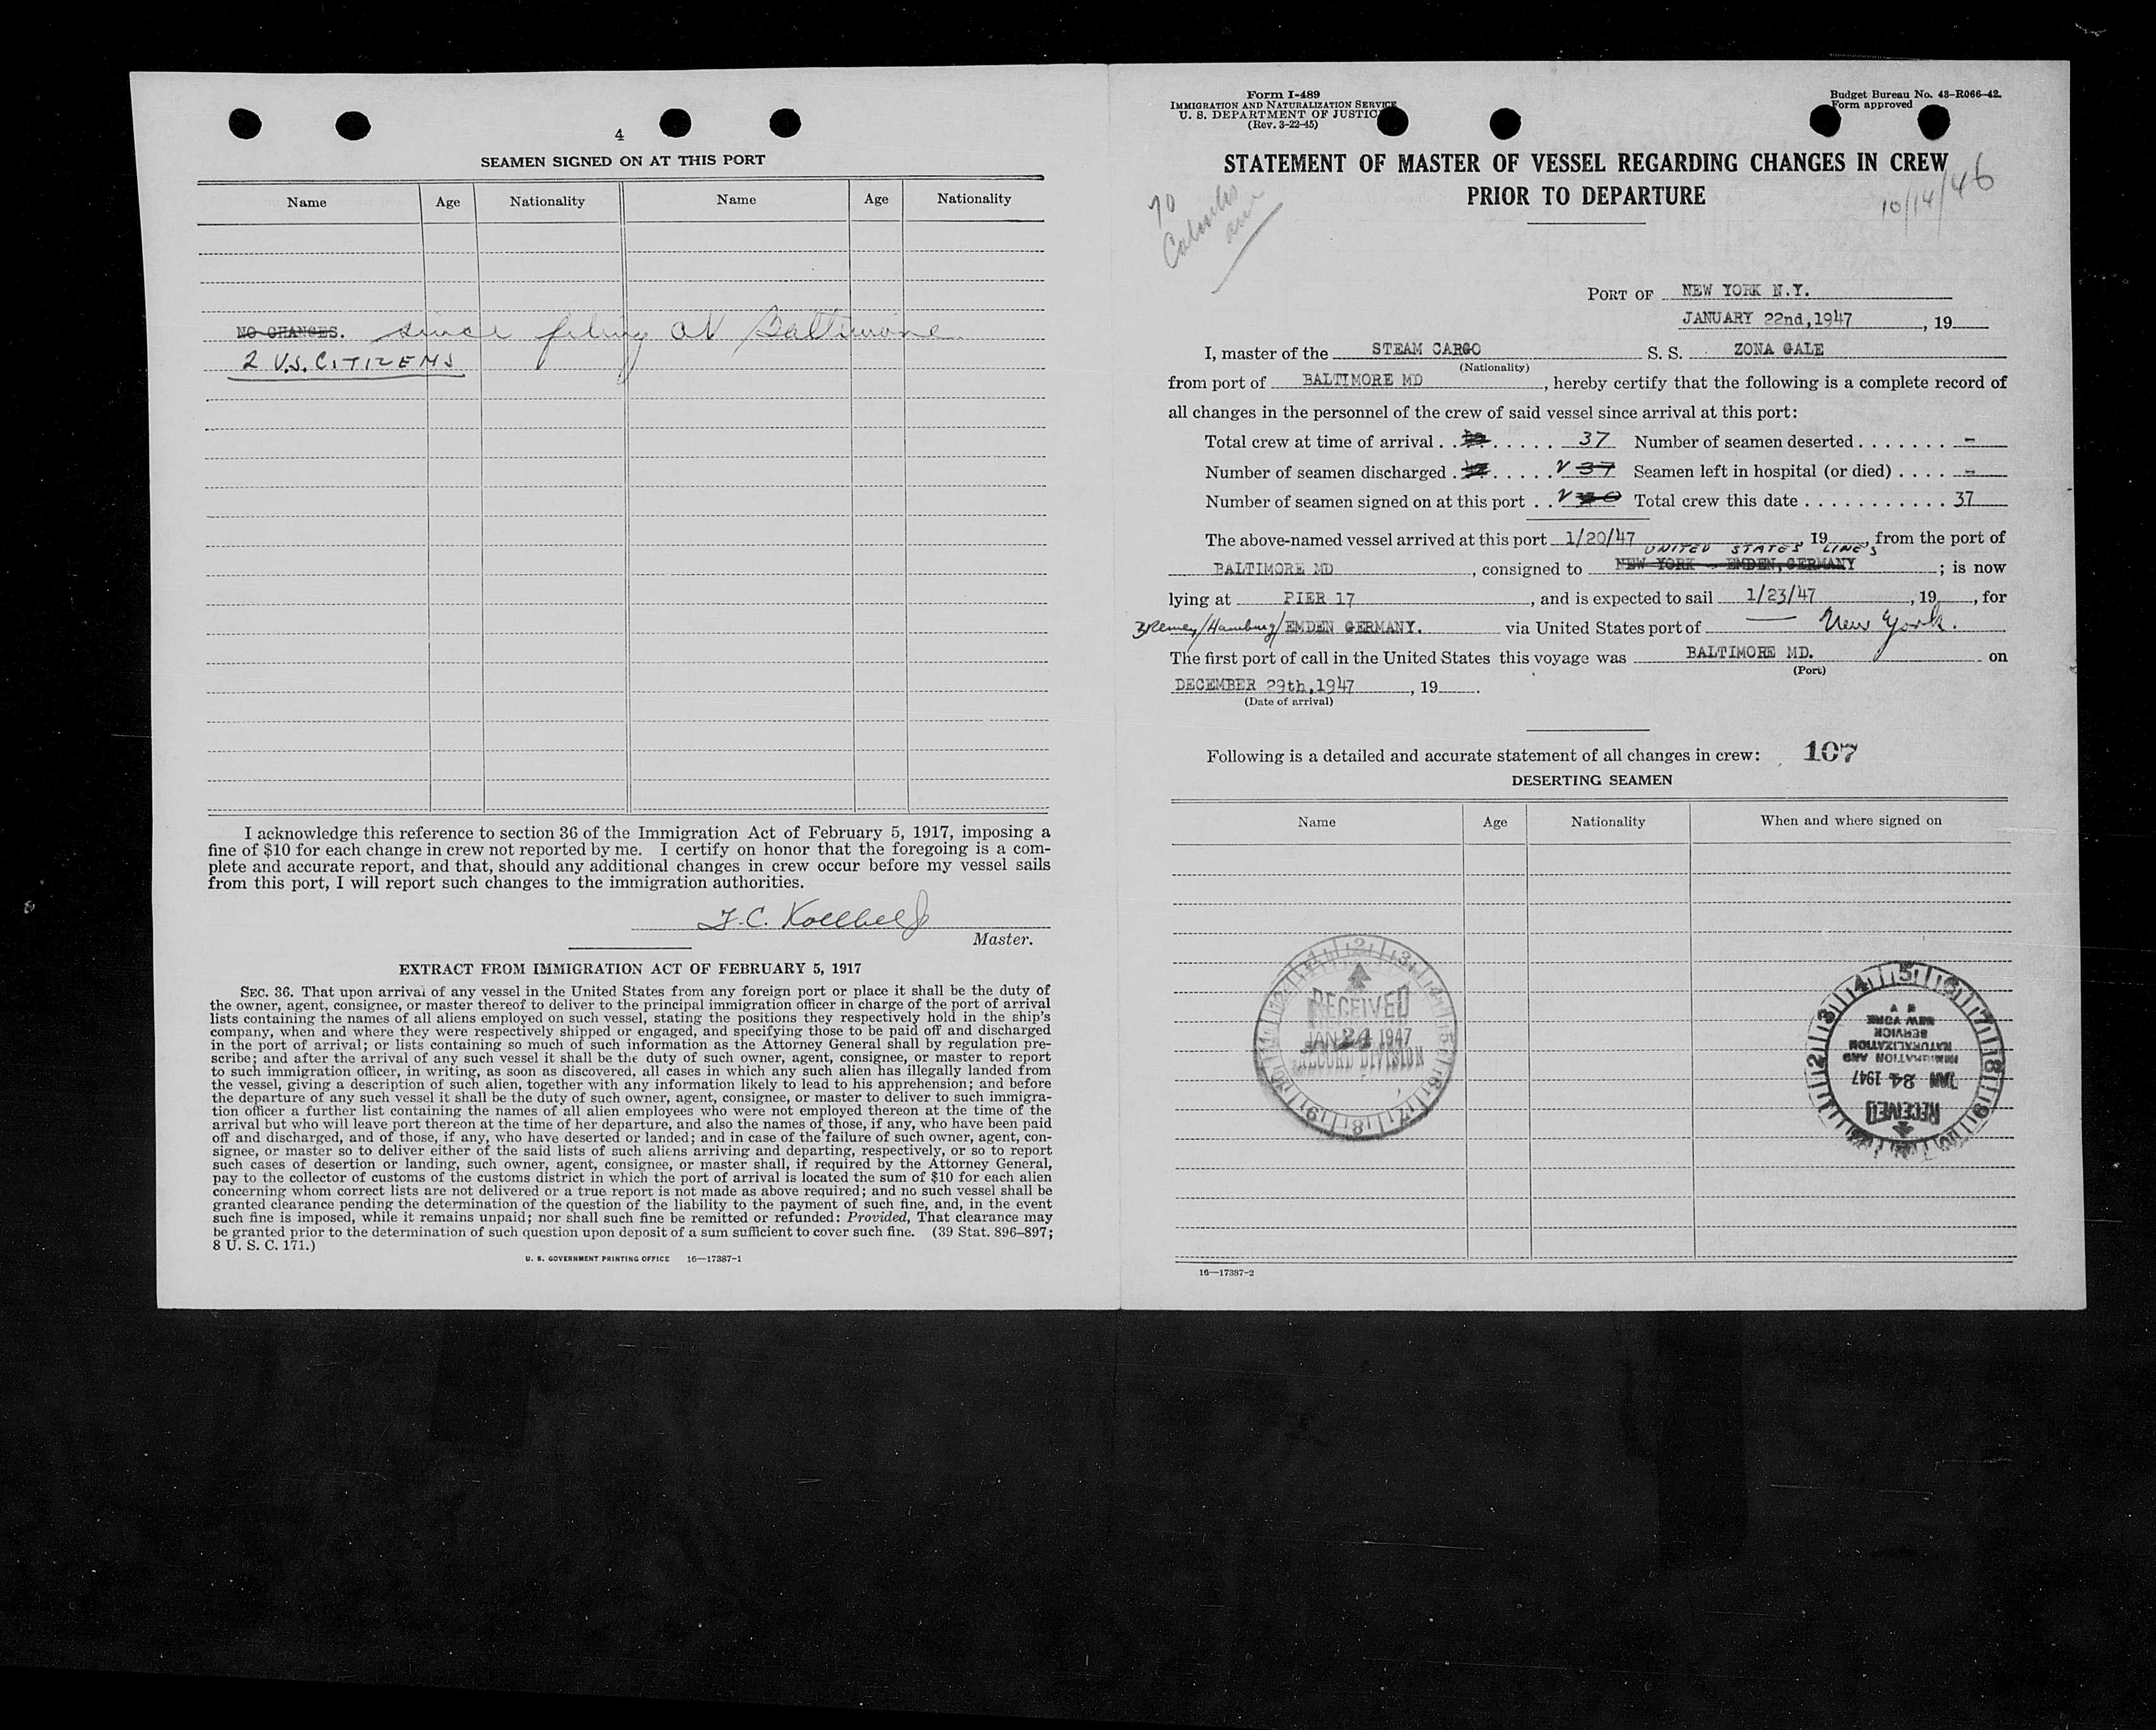 4
SEAMEN SIGNED ON AT THIS PORT
Name Age Nationality Name Age Nationality
NO CHANGES. since filing at Baltimore.
2 U.S. CITIZENS
I acknowledge this reference to section 36 of the Immigration Act of February 5, 1917, imposing a
fine of $10 for each change in crew not reported by me. I certify on honor that the foregoing is a com-
plete and accurate report, and that, should any additional changes in crew occur before my vessel sails
from this port, I will report such changes to the immigration authorities.
Master.
EXTRACT FROM IMMIGRATION ACT OF FEBRUARY 5, 1917
SEC. 36. That upon arrival of any vessel in the United States from any foreign port or place it shall be the duty of
the owner, agent, consignee, or master thereof to deliver to the principal immigration officer in charge of the port of arrival
lists containing the names of all aliens employed on such vessel, stating the positions they respectively hold in the ship's
company, when and where they were respectively shipped or engaged, and specifying those to be paid off and discharged
in the port of arrival; or lists containing so much of such information as the Attorney General shall by regulation pre-
scribe; and after the arrival of any such vessel it shall be the duty of such owner, agent, consignee, or master to report
to such immigration officer, in writing, as soon as discovered, all cases in which any such alien has illegally landed from
the vessel, giving a description of such alien, together with any information likely to lead to his apprehension; and before
the departure of any such vessel it shall be the duty of such owner, agent, consignee, or master to deliver to such immigra-
tion officer a further list containing the names of all alien employees who were not employed thereon at the time of the
arrival but who will leave port thereon at the time of her departure, and also the names of those, if any, who have been paid
off and discharged, and of those, if any, who have deserted or landed; and in case of the failure of such owner, agent, con-
signee, or master so to deliver either of the said lists of such aliens arriving and departing, respectively, or so to report
such cases of desertion or landing, such owner, agent, consignee, or master shall, if required by the Attorney General,
pay to the collector of customs of the customs district in which the port of arrival is located the sum of $10 for each alien
concerning whom correct lists are not delivered or a true report is not made as above required; and no such vessel shall be
granted clearance pending the determination of the question of the liability to the payment of such fine, and, in the event
such fine is imposed, while it remains unpaid; nor shall such fine be remitted or refunded: Provided, That clearance may
be granted prior to the determination of such question upon deposit of a sum sufficient to cover such fine. (39 Stat. 896–897;
8 U. S. C. 171.)
U. S. GOVERNMENT PRINTING OFFICE 16—17387-1
Form I-489
IMMIGRATION AND NATURALIZATION SERVICE
U. S. DEPARTMENT OF JUSTICE
(Rev. 3-22-45)
Budget Bureau No. 43-R066-42.
Form approved
STATEMENT OF MASTER OF VESSEL REGARDING CHANGES IN CREW
PRIOR TO DEPARTURE
10/14/46
PORT OF NEW YORK N.Y.
JANUARY 22nd,1947, 19
I, master of the STEAM CARGO S. S. ZONA GALE
(Nationality)
from port of BALTIMORE MD, hereby certify that the following is a complete record of
all changes in the personnel of the crew of said vessel since arrival at this port:
Total crew at time of arrival . . . . . . . 37 Number of seamen deserted . . . . . . . –
Number of seamen discharged . . . . . . 37 Seamen left in hospital (or died) . . . . –
Number of seamen signed on at this port . . Total crew this date . . . . . . . . . . . 37
The above-named vessel arrived at this port 1/20/47, 19, from the port of
UNITED STATES LINES
BALTIMORE MD, consigned to NEW YORK - EMDEN, GERMANY; is now
lying at PIER 17, and is expected to sail 1/23/47, 19, for
Bremen/Hamburg/EMDEN GERMANY. via United States port of New York.
The first port of call in the United States this voyage was BALTIMORE MD. on
(Port)
DECEMBER 29th,1947, 19.
(Date of arrival)
Following is a detailed and accurate statement of all changes in crew: 107
DESERTING SEAMEN
Name Age Nationality When and where signed on
RECEIVED
JAN 24 1947
RECORD DIVISION
RECEIVED
JAN 24 1947
IMMIGRATION AND
NATURALIZATION
SERVICE
NEW YORK
N Y
16—17387-2